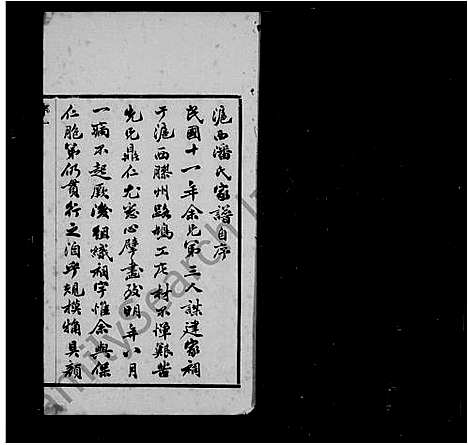 滬西潘氏家譜自序
民國十一年余兄弟三人謀建家祠
于滬西膠州路鳩工庀材不憚艱苦
先兄鼎仁尤悉心擘畫致明年八月
一病不起厥後組織祠宇惟余與保
仁胞弟仍貫行之洎乎規模犕具額
FamilySearch